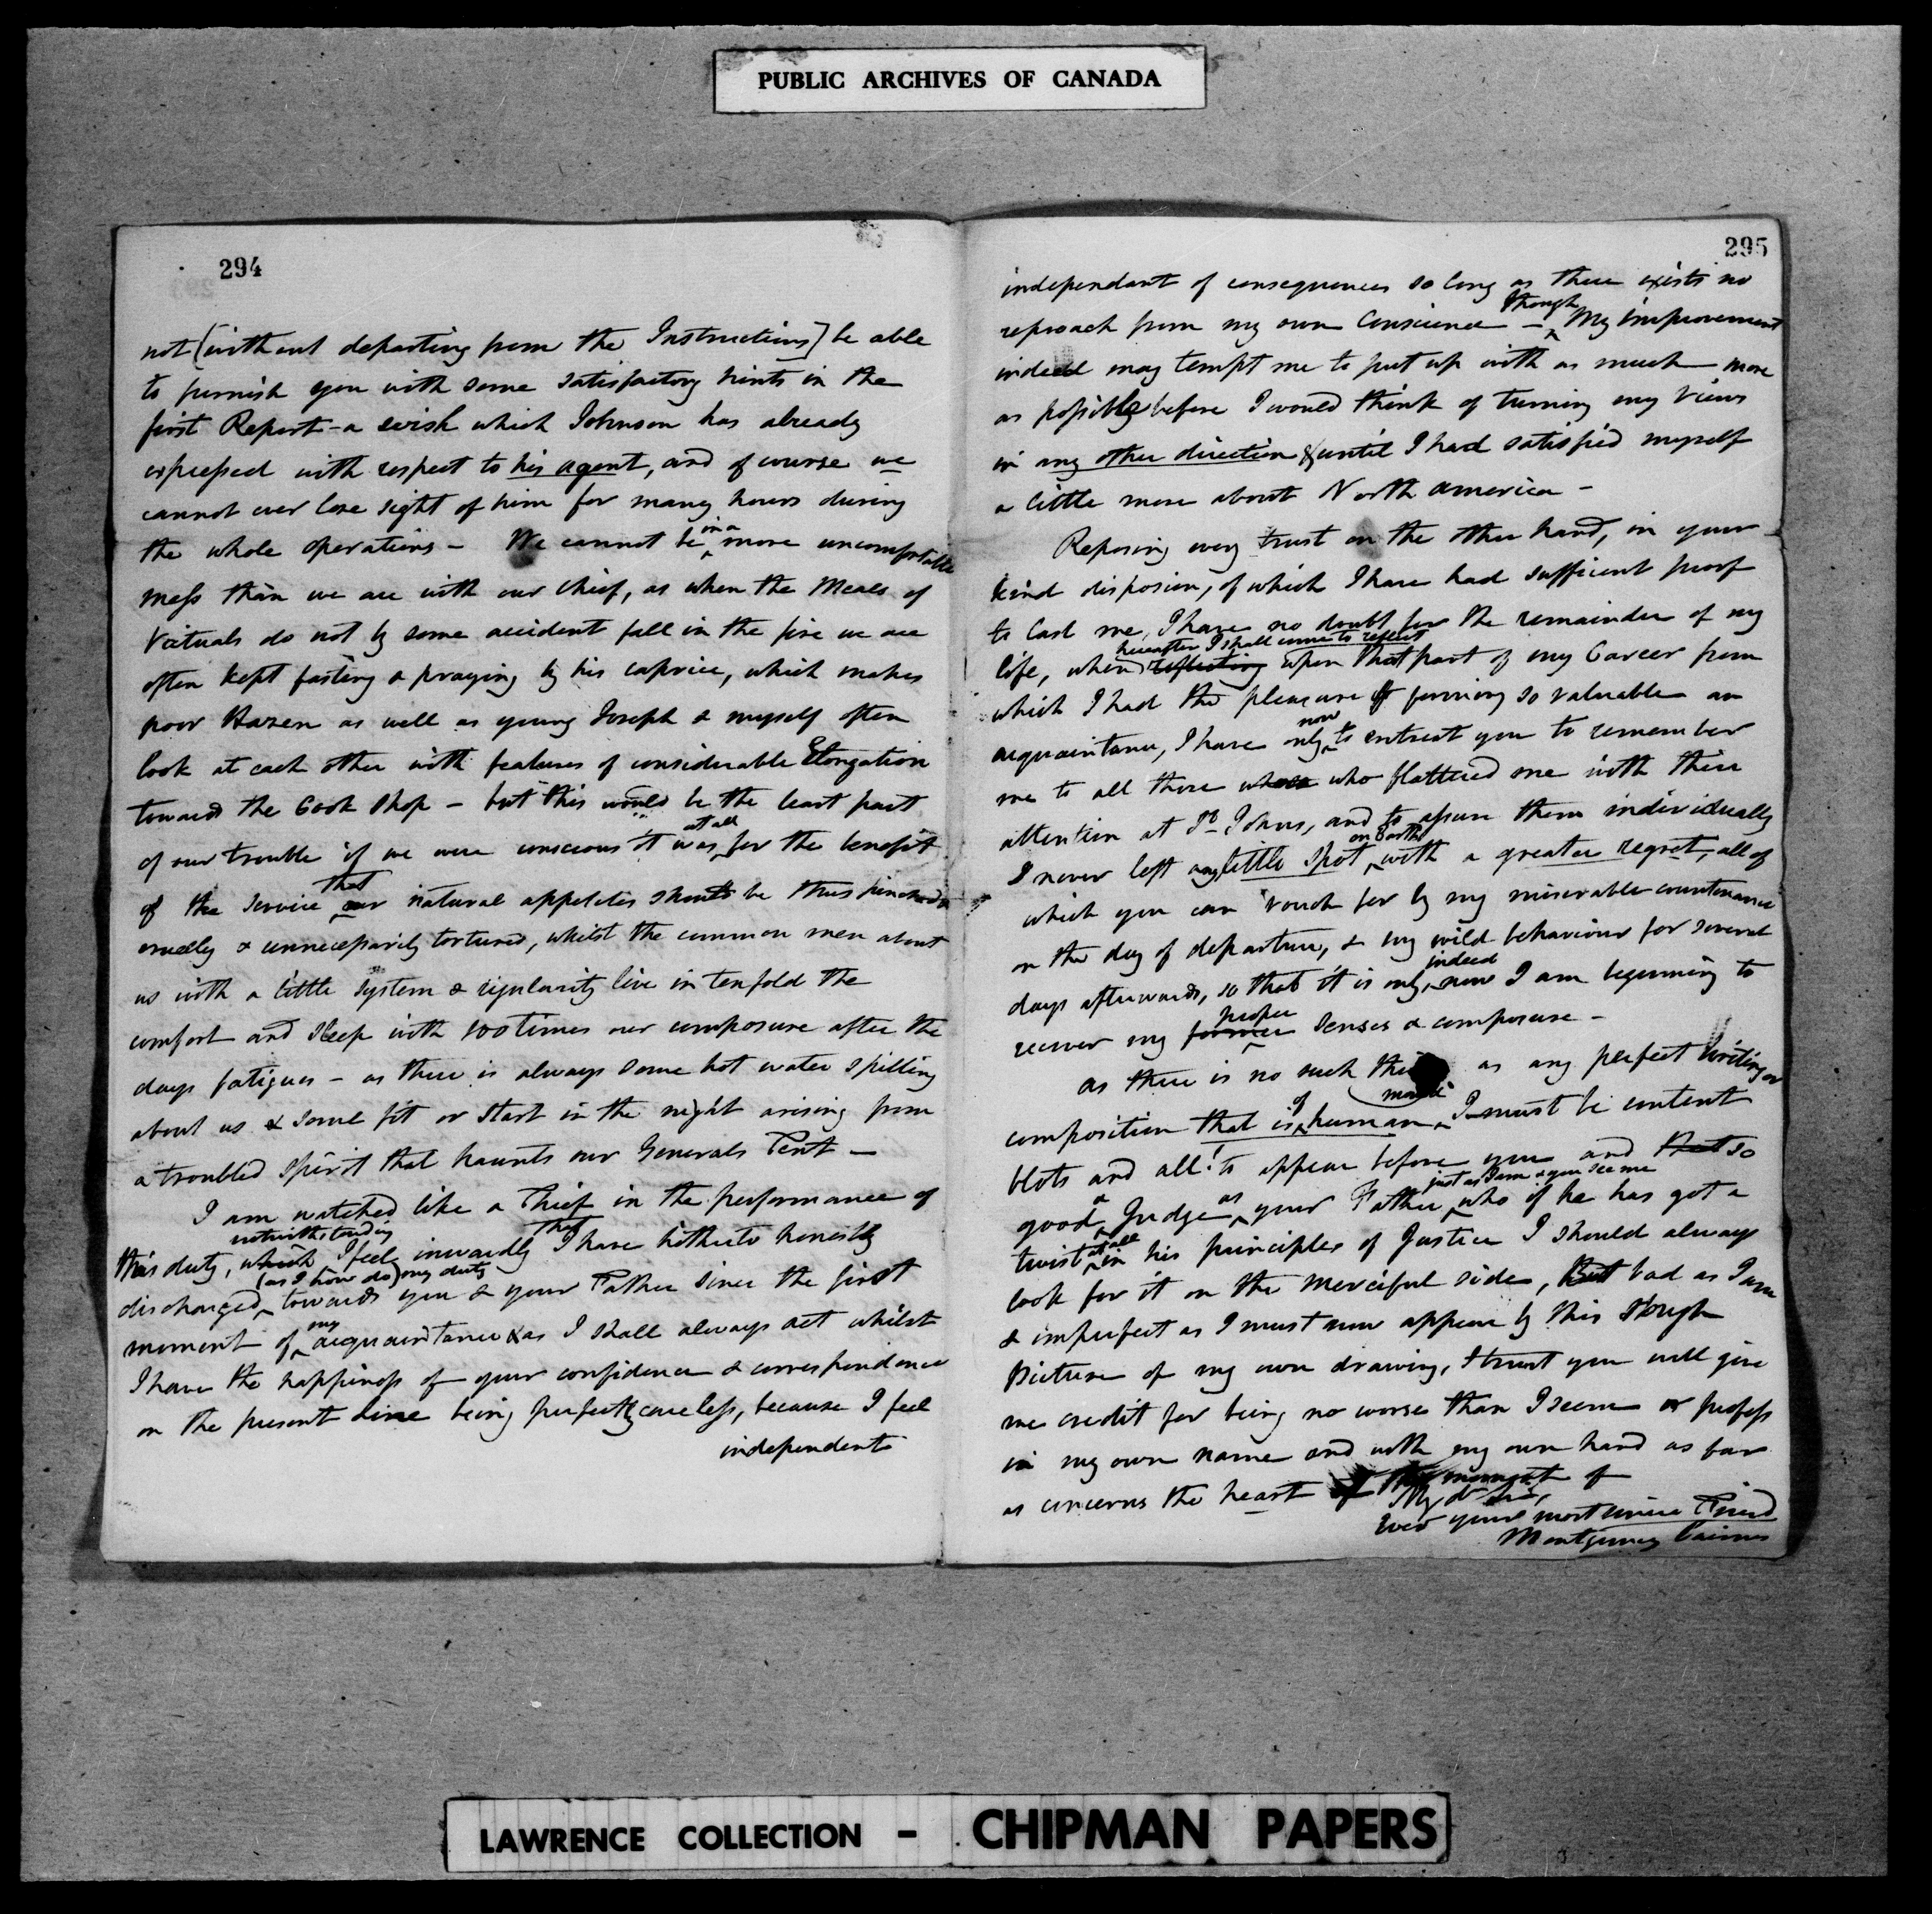 PUBLIC ARCHIVES OF CANADA
294
not [without departing from the Instructions] be able
to furnish you with some satisfactory hints in the
first Report - a wish which Johnson has already
expressed with respect to his agent, and of course we
cannot ever lose sight of him for many hours during
the whole operations - We cannot be in a more uncomfortable
mess than we are with our Chief, as when the Meals of
Victuals do not by some accident fall in the fire we are
often kept fasting & praying by his caprice, which makes
poor Hazen as well as young Joseph & myself often
look at each other with features of considerable Elongation
towards the Cook Shop - but this would be the least part
of our trouble if we were conscious it was at all for the benefit
of the Service that our natural appetites should be thus
cruelly & unnecessarily tortured, whilst the common men about
us with a little system & regularity live in tenfold the
comfort and sleep with 100 times our composure after the
days fatigues - as there is always some hot water spilling
about us & some fit or start in the night arising from
a troubled spirit that haunts our Generals Tent -
I am watched like a Thief in the performance of
this duty, which notwithstanding I feel inwardly that I have hitherto honestly
discharged (as I now do) my duty towards you & your Father since the first
moment of my acquaintance & as I shall always act whilst
I have the happiness of your confidence & correspondence
on the present line being perfectly careless, because I feel
independent
295
independant of consequences so long as there exists no
reproach from my own Conscience - though My improvement
indeed may tempt me to put up with as much more
as possible before I would think of turning my views
in any other direction & until I had satisfied myself
a little more about North America -
Reposing every trust on the other hand, in your
kind disposion, of which I have had sufficient proof
to last me, I have no doubt for the remainder of my
life, when reflecting hereafter I shall come to reflect upon that part of my Career from
which I had the pleasure of forming so valuable an
acquaintance, I have only now to entreat you to remember
me to all those who flattered me with their
attention at St Johns, and to assure them individually
I never left any little spot on Earth with a greater regret, all of
which you can vouch for by my miserable countenance
on the day of departure, & my wild behaviour for several
days afterwards, so that it is only indeed now I am beginning to
recover my former proper senses & composure -
As there is no such thing as any perfect writing or
composition that is of human made I must be content
blots and all! to appear before you and that so
good a Judge as your Father just as I am & you see me who if he has got a
twist at all in his principles of Justice I should always
look for it on the merciful side, But bad as I am
& imperfect as I must now appear by this rough
Picture of my own drawing, I trust you will give
me credit for being no worse than I seem or profess
in my own name and with my own hand as far
as concerns the heart of
My dr Sir,
Ever your most sincere Friend
Montgomery Cairnes
LAWRENCE COLLECTION - CHIPMAN PAPERS